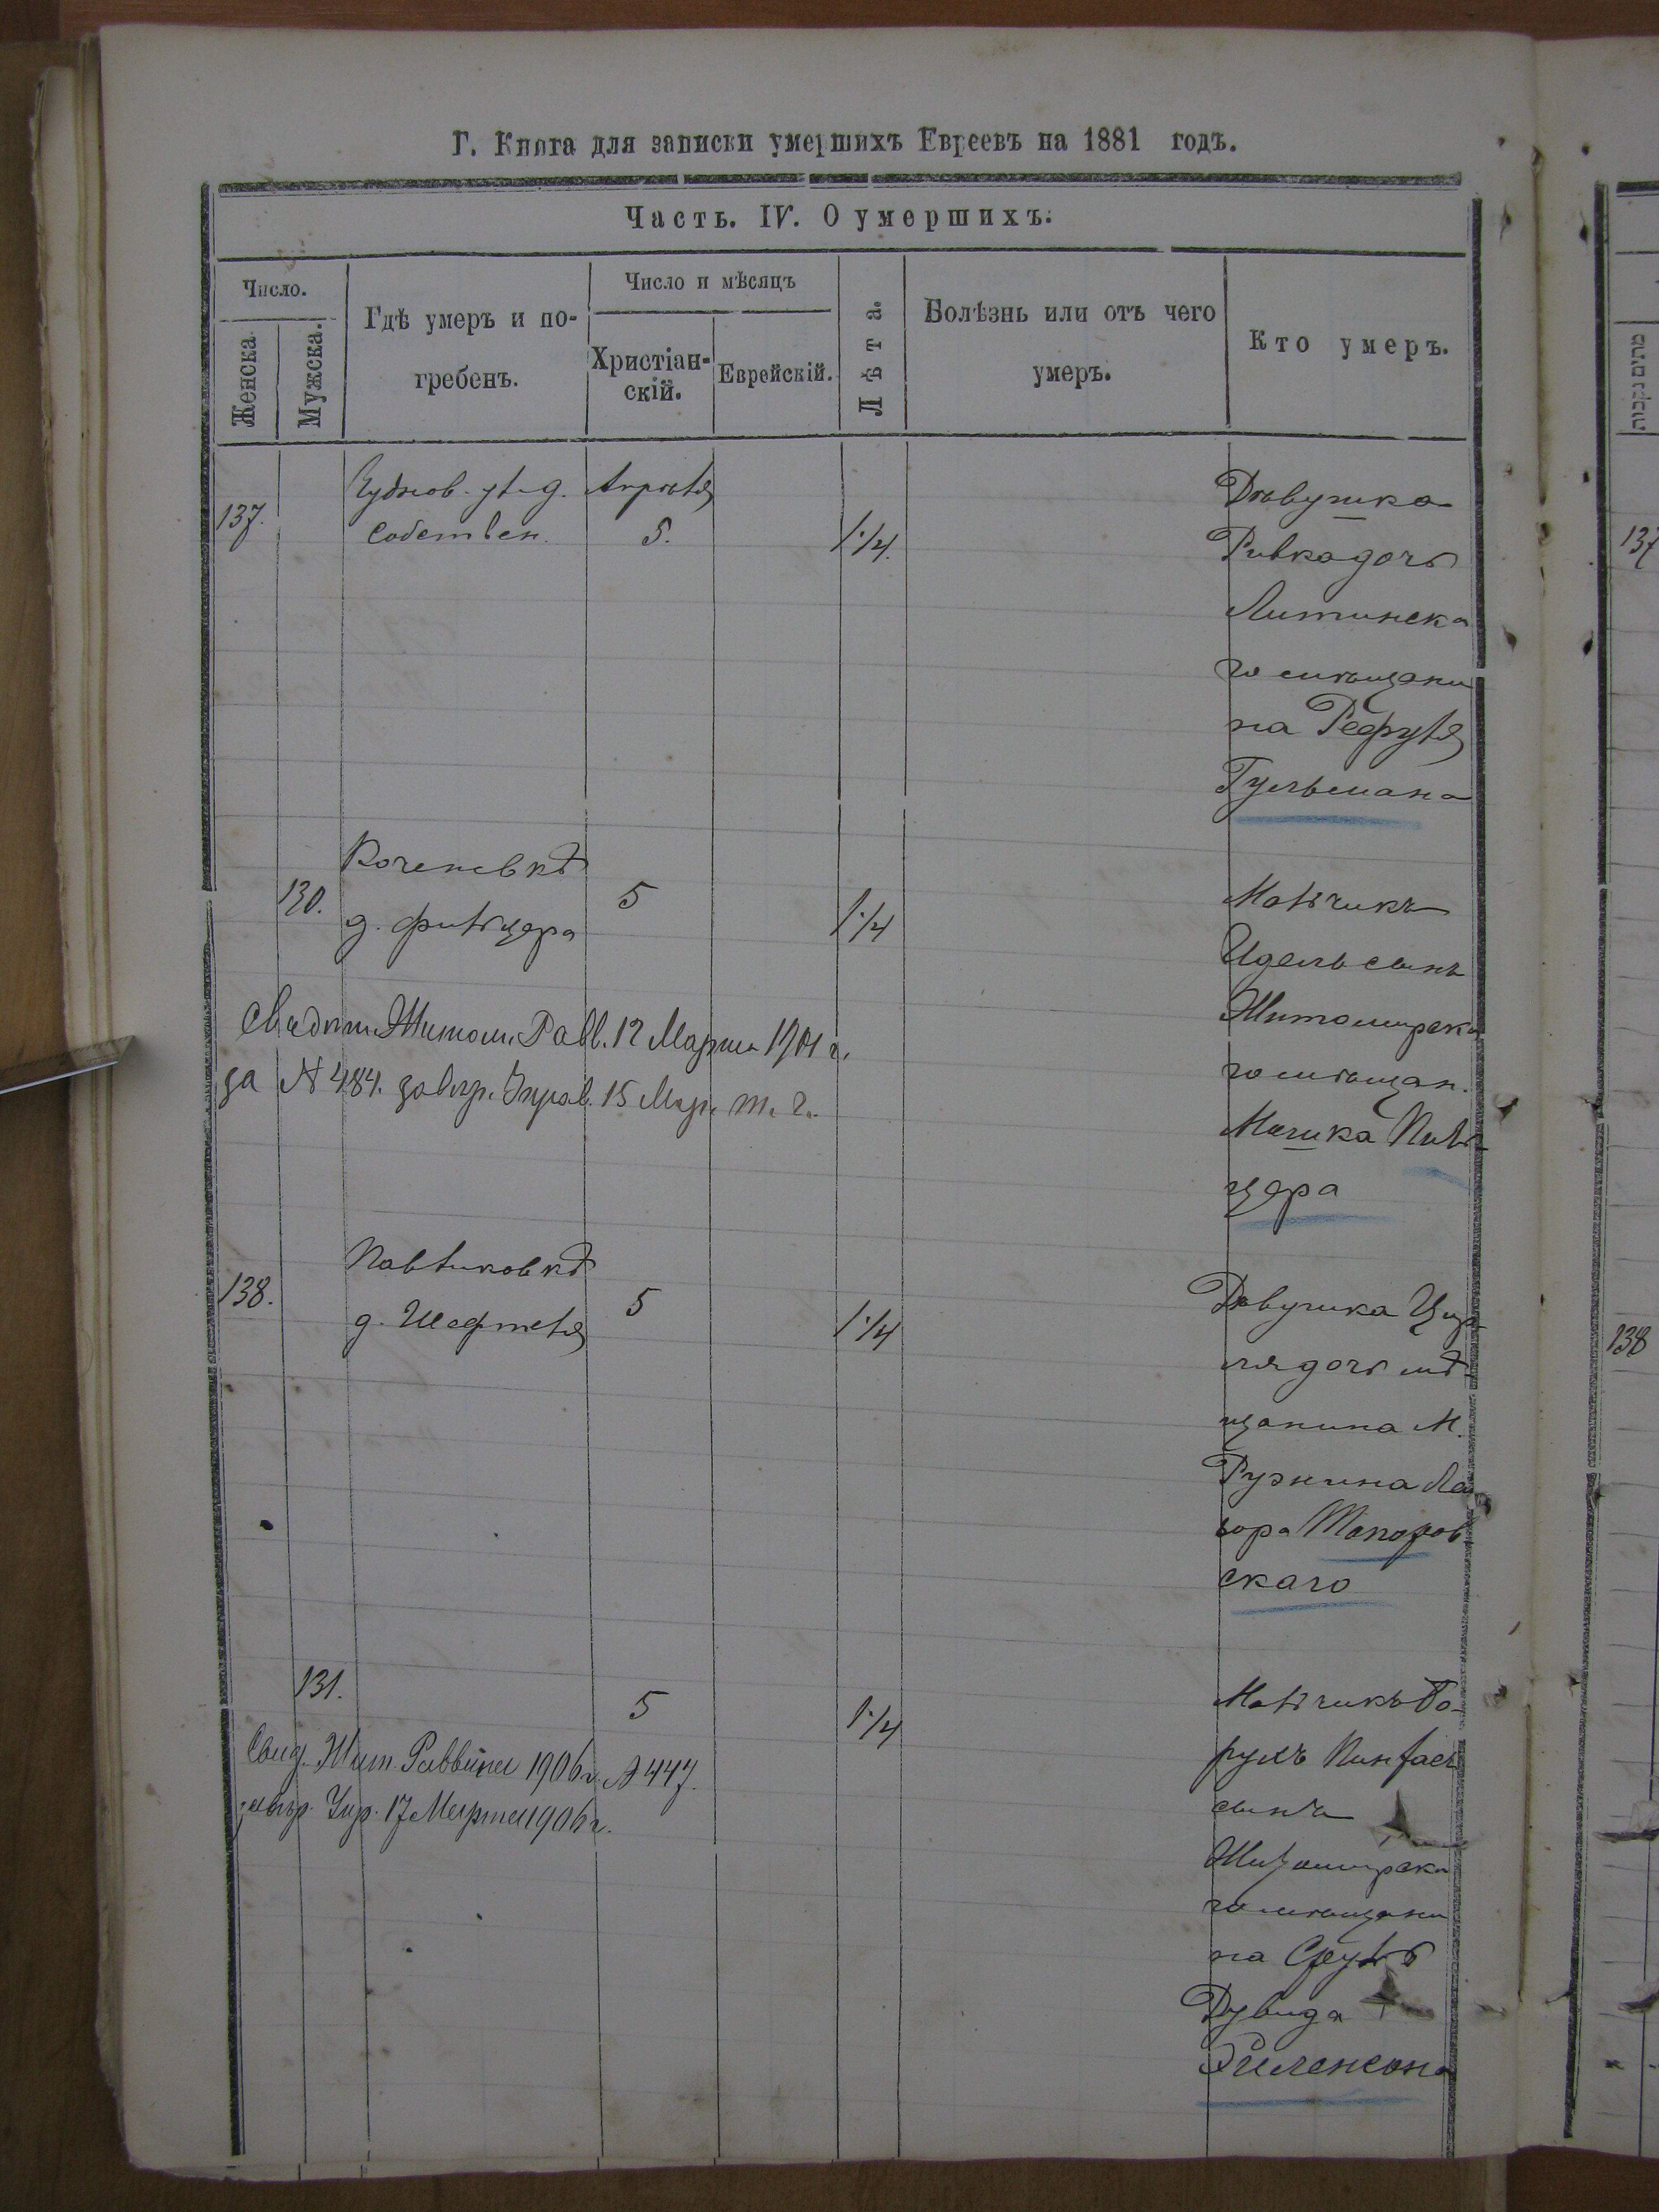 Г. Книга для записки умершихъ Евреевъ на 1881 годъ.
Часть. IV. О умершихъ.
Число.
Женска
Мужска.
Гдѣ умеръ и по-
гребенъ.
Число и мѣсяцъ
Христіан-
скій.
Еврейскій.
Лѣта.
Болѣзнь или отъ чего
умеръ.
Кто умеръ.
מתים נקבות
137.
Чуднов. ул. д.
собствен.
Апрѣля
5.
1 1/4.
Дѣвушка
Ривка дочь
Литинска
го мѣщани
на Рефуля
Гульмана
137
130.
Коченевкѣ
д. Фильцера
5
1 1/4
Мальчикъ
Идель сынъ
Житомирска
го мѣщан.
Мошка Пиль
цера
Свидѣт. Житом. Равв. 12 Марта 1901 г.
за № 484. завѣр. Управ. 15 Мар. т. г.
138.
Павликовкѣ
д. Шефтеля
5
1 1/4
Дѣвушка
дочь мѣ
щанина М.
Ружина Лей
зора Топоров
скаго
138
131.
5
1 1/4
Мальчикъ Бо-
рухъ Пинхас
сынъ
Житомирска
го мѣщани
на Сруль
Дувида
Эйленсона
Свид. Жит. Раввина 1906 г. № 447.
завѣр. Упр. 17 Марта 1906 г.